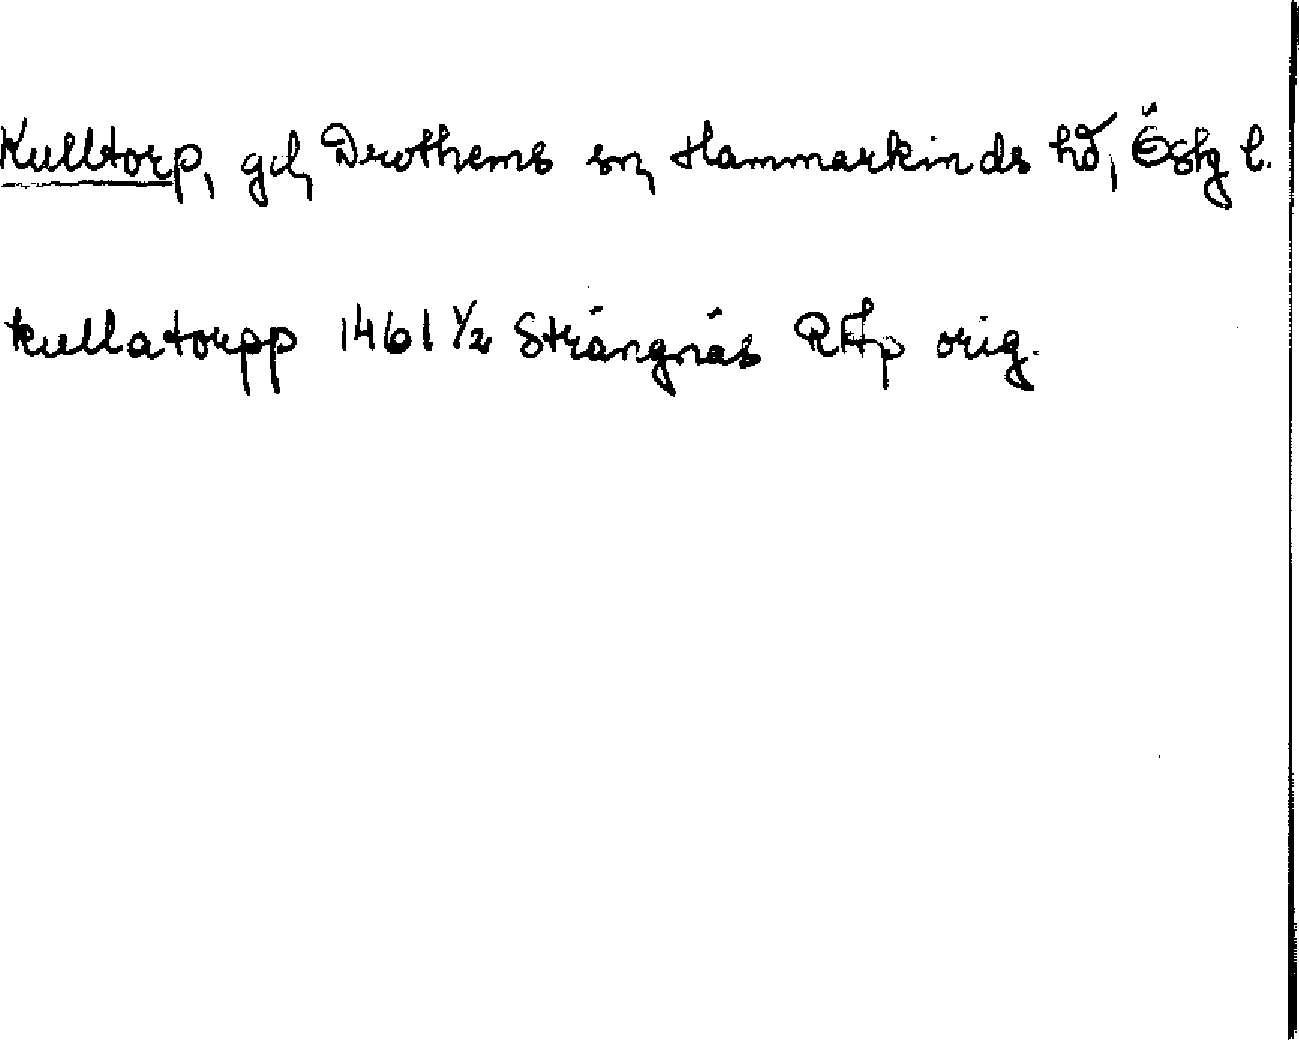 Kulltorp, gd, Drothems sn, Hammarkinds hd, Östg l.
kullatorpp 1461 1/2 Strängnäs RAp orig.